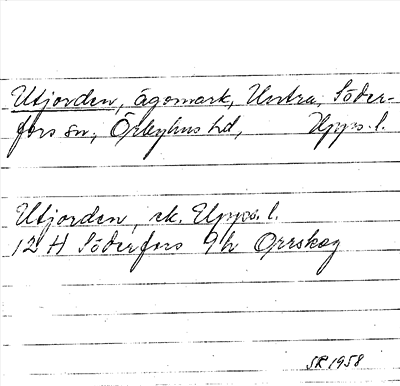 Utjorden, ägomark, Untra, Söder-
fors sn, Örbyhus hd, Upps. l.
Utjorden, ek. Upps. l.
12 H Söderfors 9h Orrskog
SR 1958